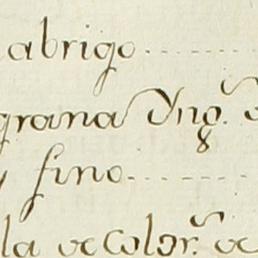 abrigo
grana Yng.
y fino
la de color. de